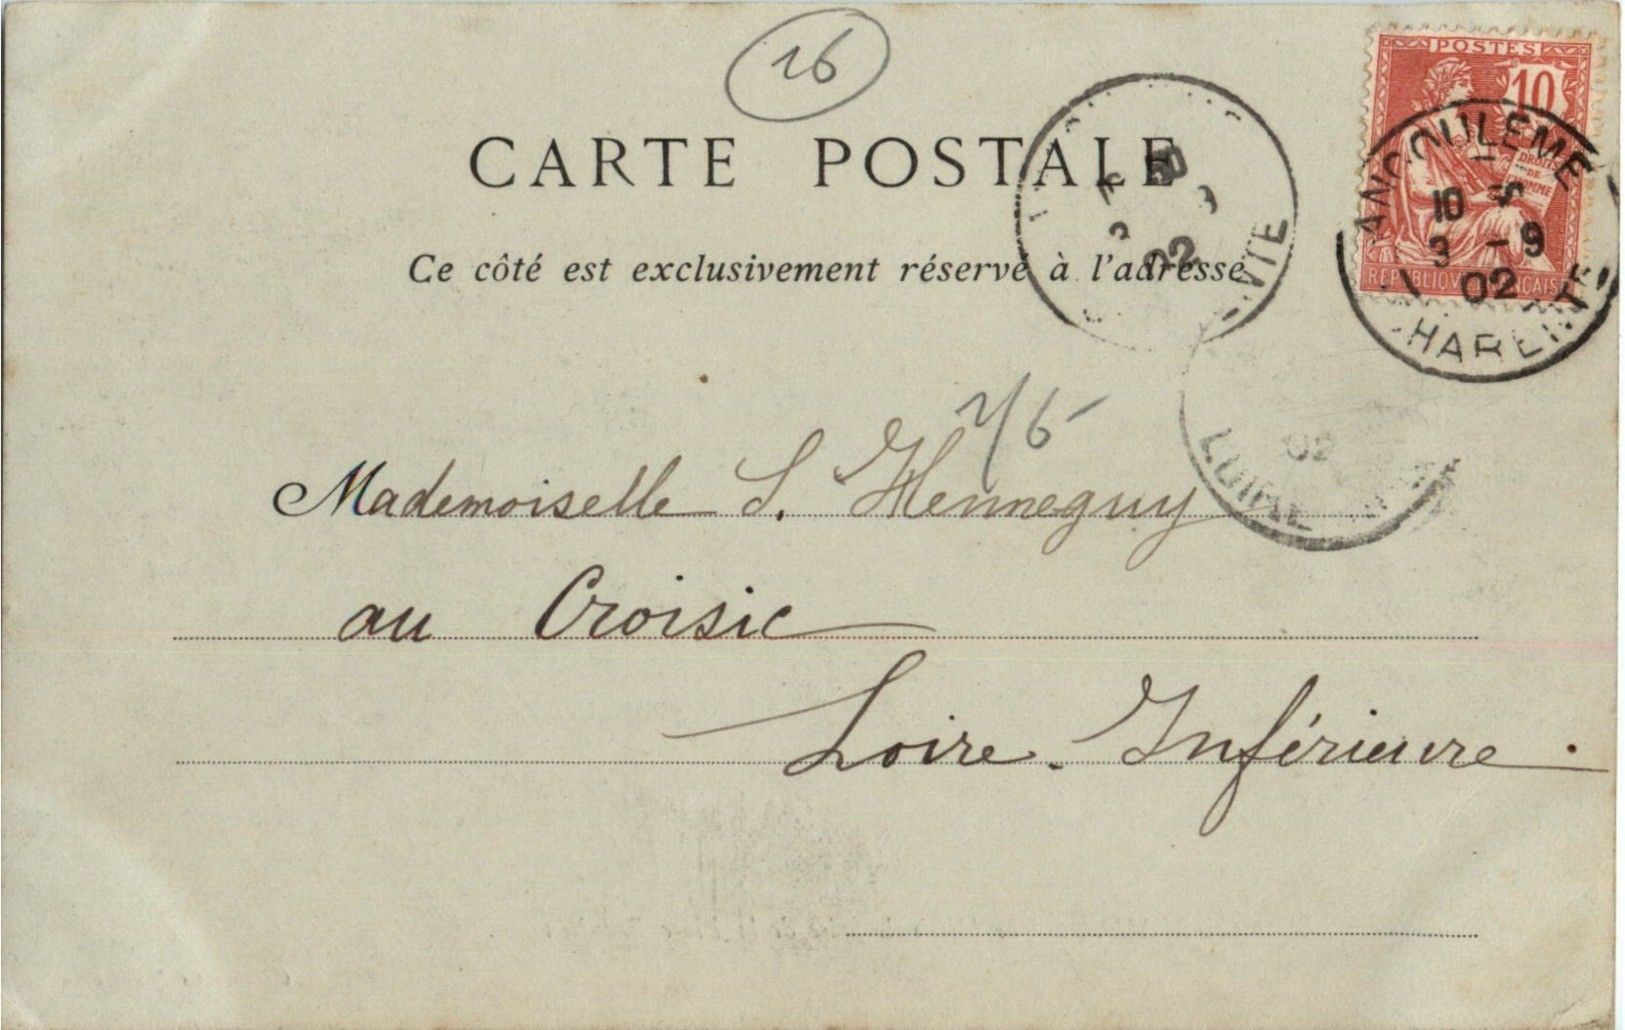 16
POSTES
10
DROITS
DE
HOMME
REPUBLIQUE FRANCAISE
ANGOULEME
10
3 - 9
02
CHARENTE
CARTE POSTALE
02
Ce côté est exclusivement réservé à l'adresse
02
LOIRE
Mademoiselle S. Henneguy
au Croisic
Loire-Inférieure.